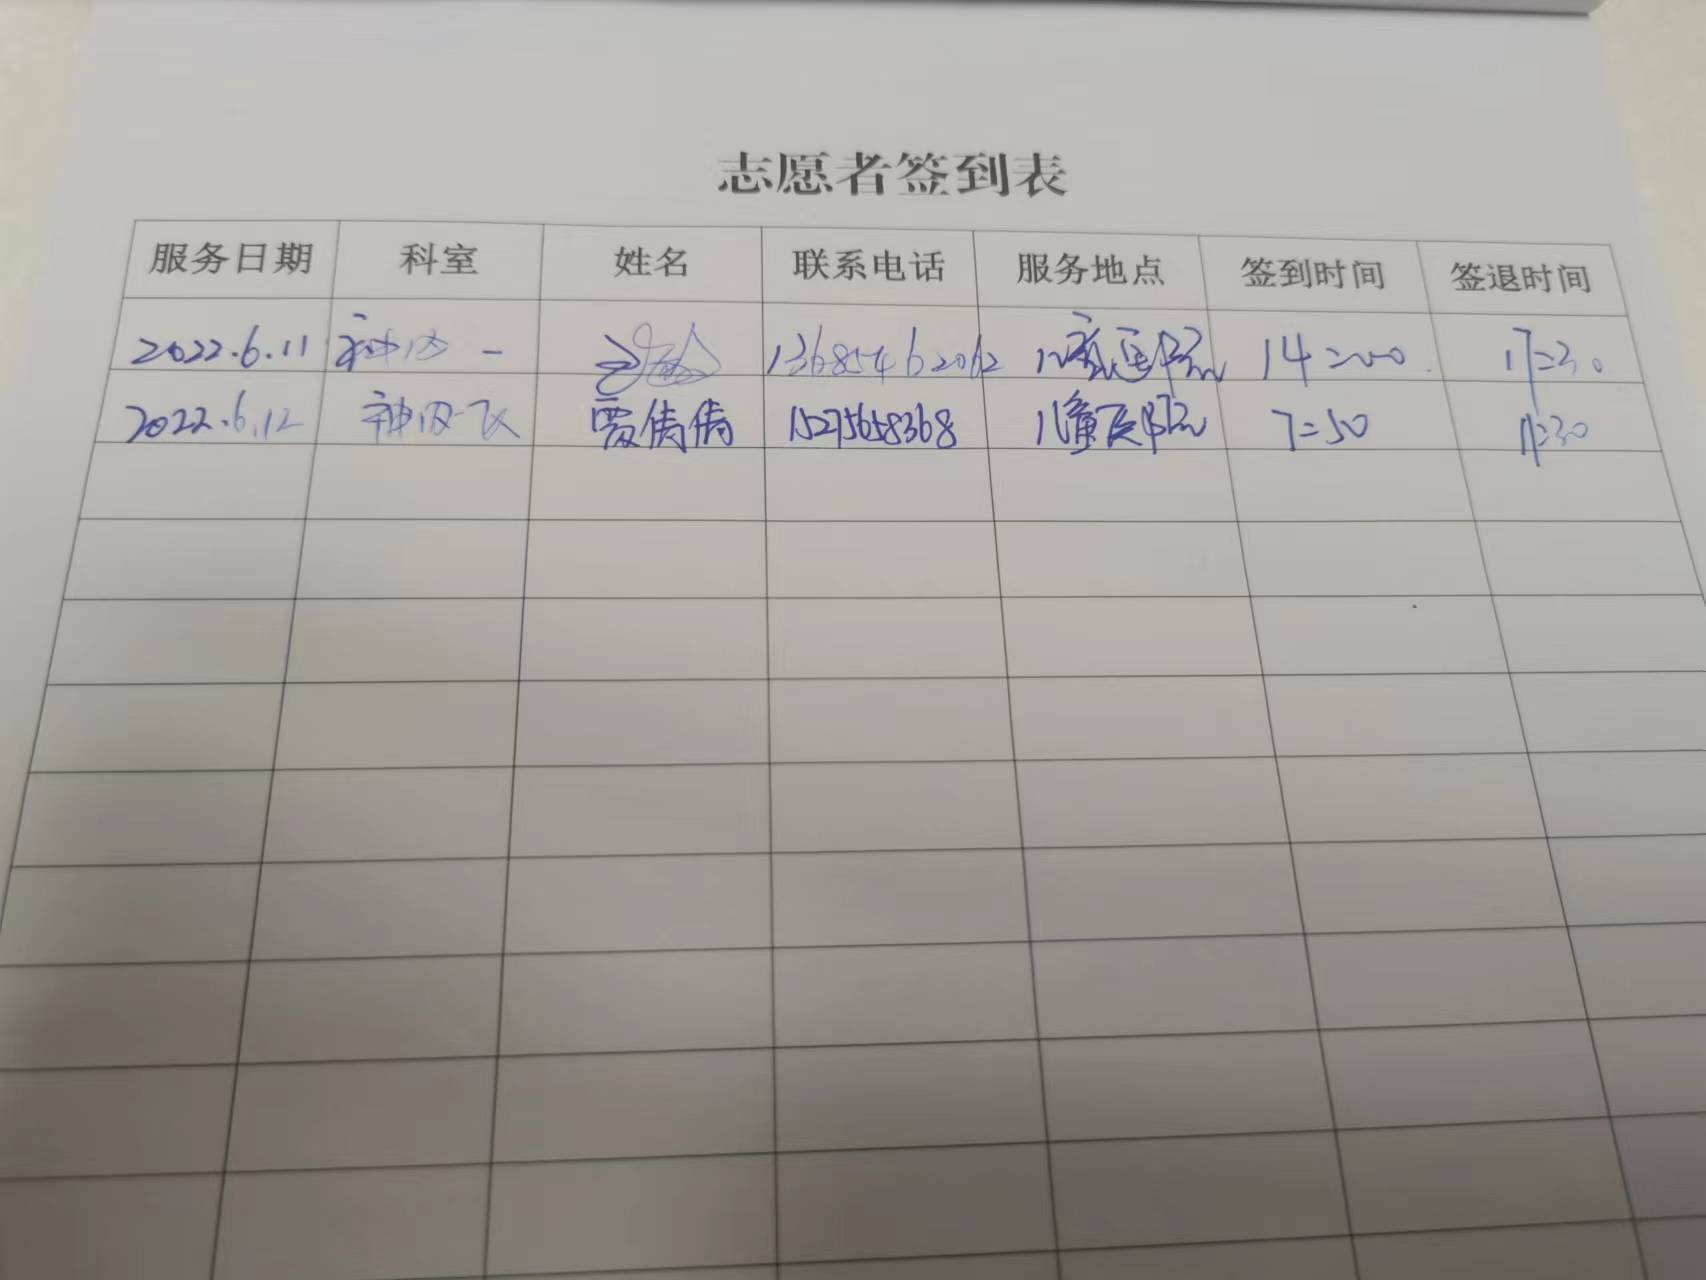 志愿者签到表
服务日期 科室 姓名 联系电话 服务地点 签到时间 签退时间
2022.6.11 神内一 13685462062 儿童医院 14:00 17:30
2022.6.12 神内一 贾倩倩 15275658368 儿童医院 7:50 11:30